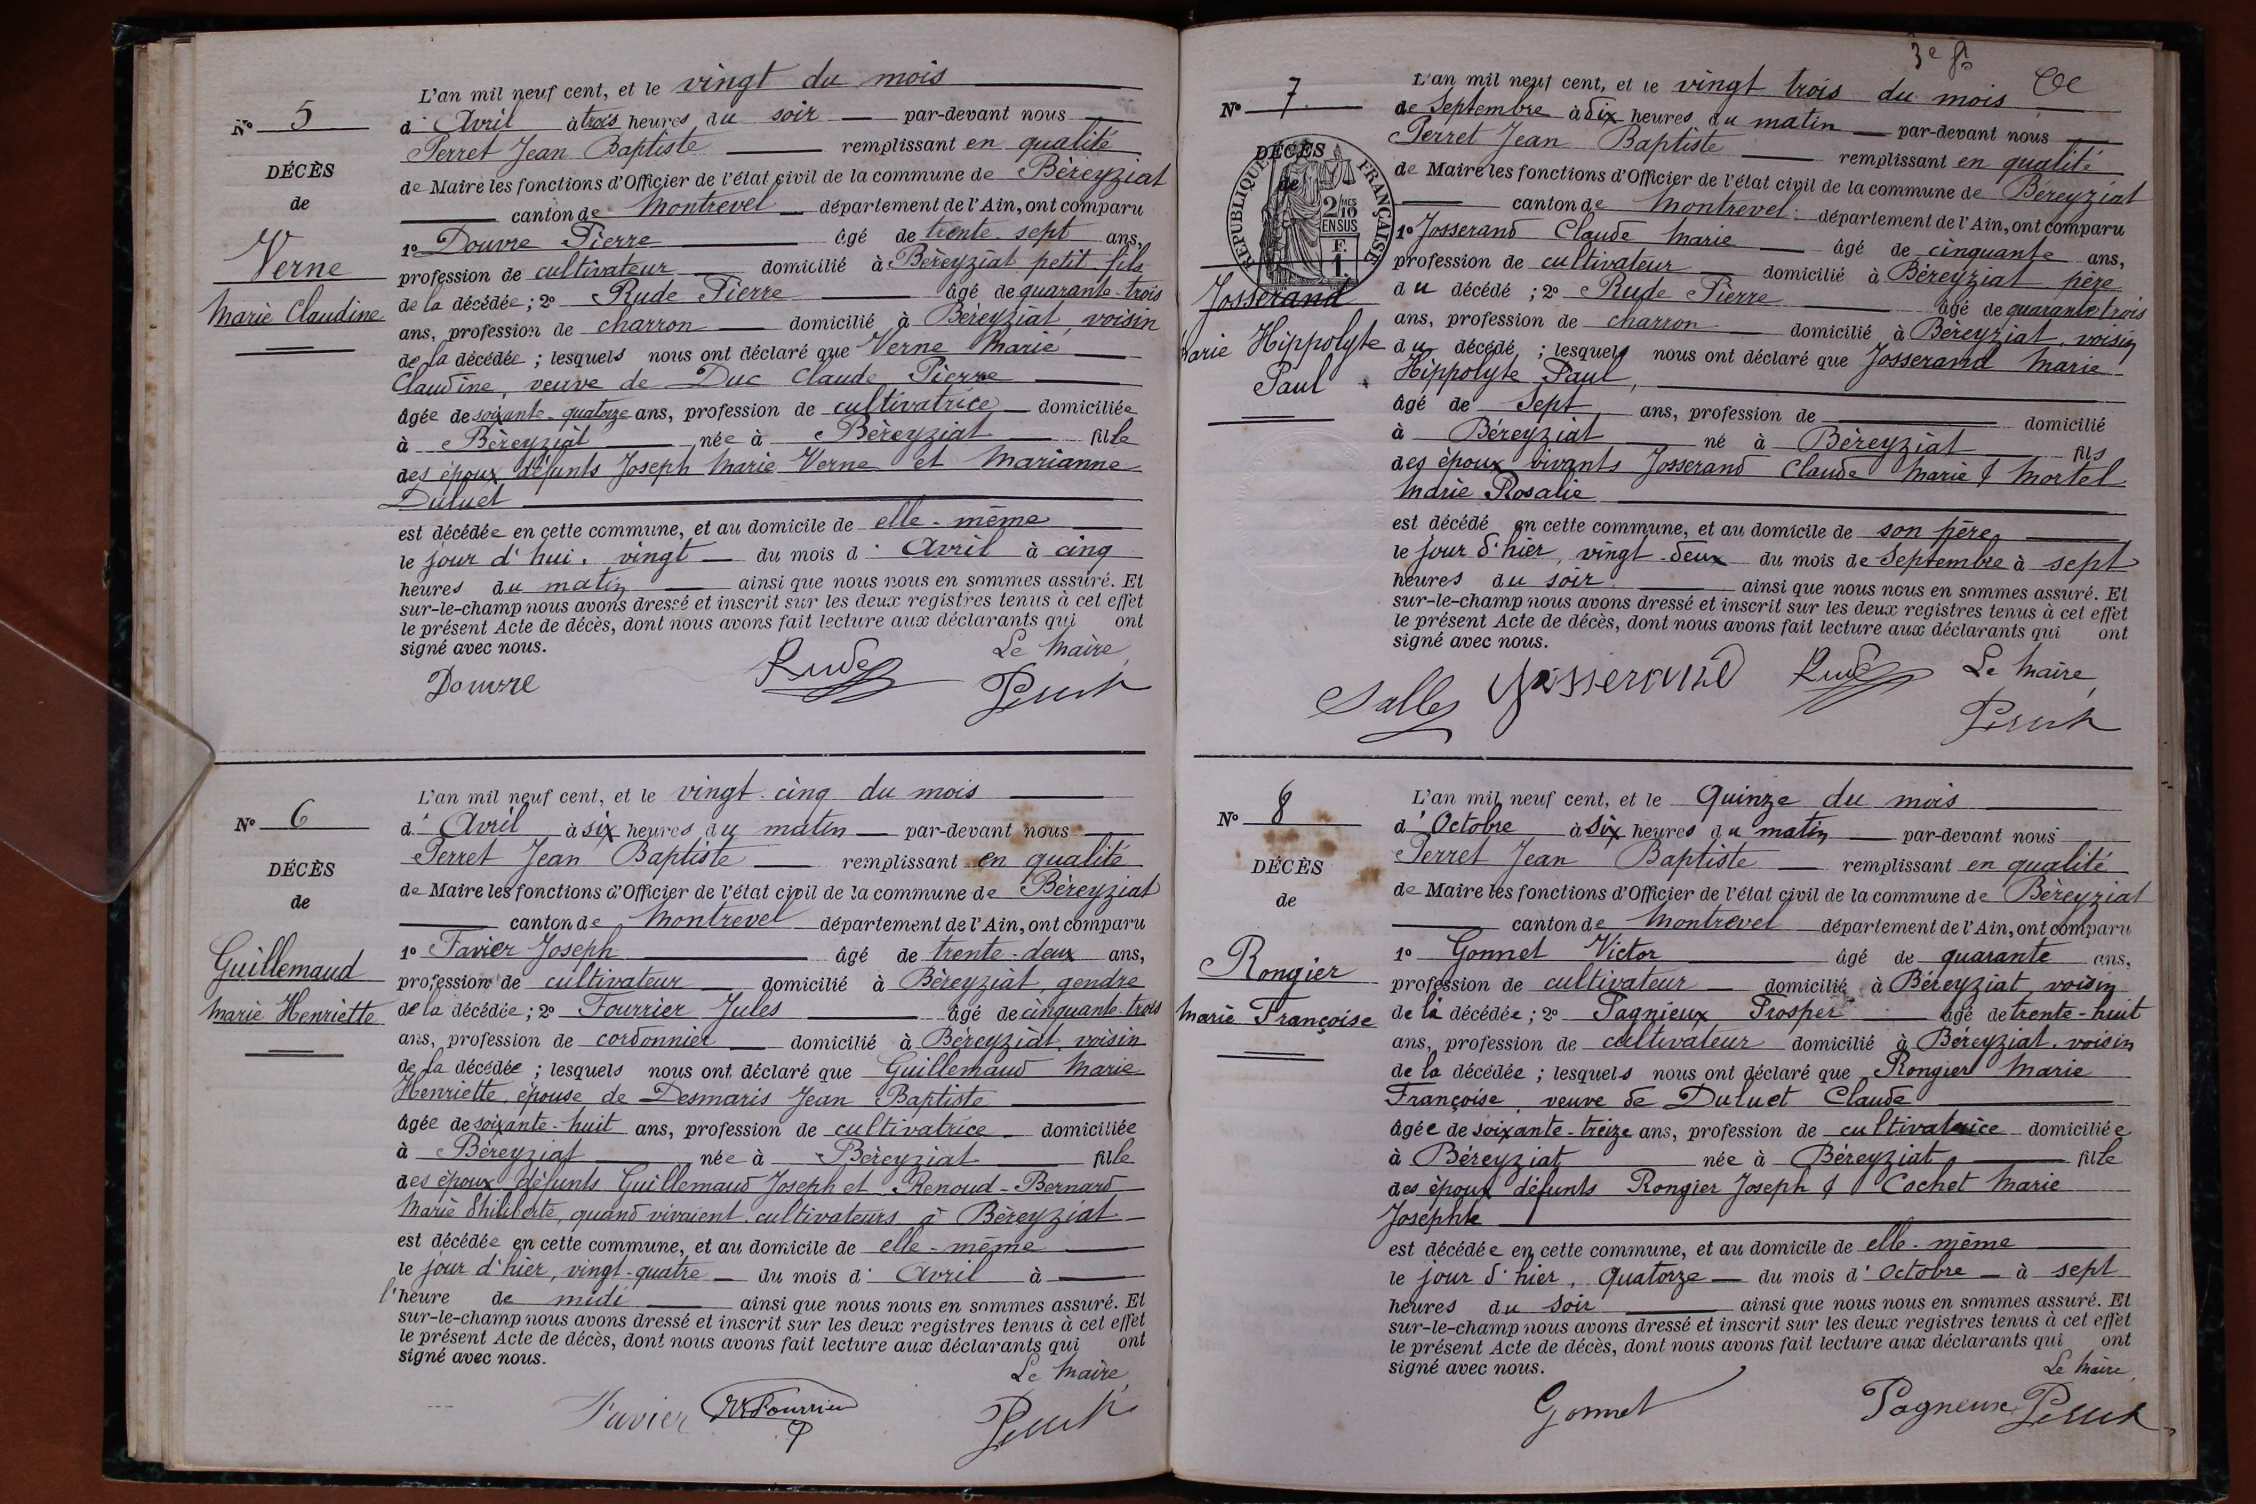 N° 5
DÉCÈS
de
Verne
Marie Claudine
L'an mil neuf cent, et le vingt du mois
d' Avril à trois heures du soir par-devant nous
Perret Jean Baptiste remplissant en qualité
de Maire les fonctions d'Officier de l'état civil de la commune de Béreyziat
canton de Montrevel département de l'Ain, ont comparu
1° Douvre Pierre âgé de trente-sept ans,
profession de cultivateur domicilié à Béreyziat petit-fils
de la décédée ; 2° Rude Pierre âgé de quarante-trois
ans, profession de charron domicilié à Béreyziat, voisin
de la décédée ; lesquels nous ont déclaré que Verne Marie
Claudine, veuve de Duc Claude Pierre
âgée de soixante-quatorze ans, profession de cultivatrice domiciliée
à Béreyziat née à Béreyziat fille
des époux défunts Joseph Marie Verne et Marianne
Duluet
est décédée en cette commune, et au domicile de elle-même
le jour d'hui, vingt du mois d' Avril à cinq
heures du matin ainsi que nous nous en sommes assuré. Et
sur-le-champ nous avons dressé et inscrit sur les deux registres tenus à cet effet
le présent Acte de décès, dont nous avons fait lecture aux déclarants qui ont
signé avec nous.
Le Maire,
Douvre Rude Perret
N° 6
DÉCÈS
de
Guillemaud
Marie Henriette
L'an mil neuf cent, et le vingt-cinq du mois
d' Avril à six heures du matin par-devant nous
Perret Jean Baptiste remplissant en qualité
de Maire les fonctions d'Officier de l'état civil de la commune de Béreyziat
canton de Montrevel département de l'Ain, ont comparu
1° Favier Joseph âgé de trente-deux ans,
profession de cultivateur domicilié à Béreyziat, gendre
de la décédée ; 2° Fourrier Jules âgé de cinquante-trois
ans, profession de cordonnier domicilié à Béreyziat, voisin
de la décédée ; lesquels nous ont déclaré que Guillemaud Marie
Henriette, épouse de Desmaris Jean Baptiste
âgée de soixante-huit ans, profession de cultivatrice domiciliée
à Béreyziat née à Béreyziat fille
des époux défunts Guillemaud Joseph et Renoud-Bernard
Marie Philiberte, quand vivaient cultivateurs à Béreyziat
est décédée en cette commune, et au domicile de elle-même
le jour d'hier, vingt-quatre du mois d' Avril à
l'heure de midi ainsi que nous nous en sommes assuré. Et
sur-le-champ nous avons dressé et inscrit sur les deux registres tenus à cet effet
le présent Acte de décès, dont nous avons fait lecture aux déclarants qui ont
signé avec nous.
Le Maire,
Favier Fourrier Perret
3e
N° 7
DÉCÈS
de
RÉPUBLIQUE FRANÇAISE
2/10 MES
EN SUS
F.
1.
Josserand
Marie Hippolyte
Paul
L'an mil neuf cent, et le vingt trois du mois
de Septembre à dix heures du matin par-devant nous
Perret Jean Baptiste remplissant en qualité
de Maire les fonctions d'Officier de l'état civil de la commune de Béreyziat
canton de Montrevel département de l'Ain, ont comparu
1° Josserand Claude Marie âgé de cinquante ans,
profession de cultivateur domicilié à Béreyziat père
du décédé ; 2° Rude Pierre âgé de quarante trois
ans, profession de charron domicilié à Béreyziat, voisin
du décédé ; lesquels nous ont déclaré que Josserand Marie
Hippolyte Paul,
âgé de Sept ans, profession de domicilié
à Béreyziat né à Béreyziat fils
des époux vivants Josserand Claude Marie & Mortel
Marie Rosalie
est décédé en cette commune, et au domicile de son père
le jour d'hier, vingt-deux du mois de Septembre à sept
heures du soir ainsi que nous nous en sommes assuré. Et
sur-le-champ nous avons dressé et inscrit sur les deux registres tenus à cet effet
le présent Acte de décès, dont nous avons fait lecture aux déclarants qui ont
signé avec nous.
Le Maire,
Salles Josserand Rude Perret
N° 8
DÉCÈS
de
Rongier
Marie Françoise
L'an mil neuf cent, et le Quinze du mois
d' Octobre à six heures du matin par-devant nous
Perret Jean Baptiste remplissant en qualité
de Maire les fonctions d'Officier de l'état civil de la commune de Béreyziat
canton de Montrevel département de l'Ain, ont comparu
1° Gonnet Victor âgé de quarante ans,
profession de cultivateur domicilié à Béreyziat, voisin
de la décédée ; 2° Pagnieux Prosper âgé de trente-huit
ans, profession de cultivateur domicilié à Béreyziat, voisin
de la décédée ; lesquels nous ont déclaré que Rongier Marie
Françoise, veuve de Duluet Claude
âgée de soixante-treize ans, profession de cultivatrice domiciliée
à Béreyziat née à Béreyziat fille
des époux défunts Rongier Joseph & Cochet Marie
Josephte
est décédée en cette commune, et au domicile de elle-même
le jour d'hier, Quatorze du mois d' Octobre à sept
heures du soir ainsi que nous nous en sommes assuré. Et
sur-le-champ nous avons dressé et inscrit sur les deux registres tenus à cet effet
le présent Acte de décès, dont nous avons fait lecture aux déclarants qui ont
signé avec nous.
Le Maire,
Gonnet Pagneux Perret